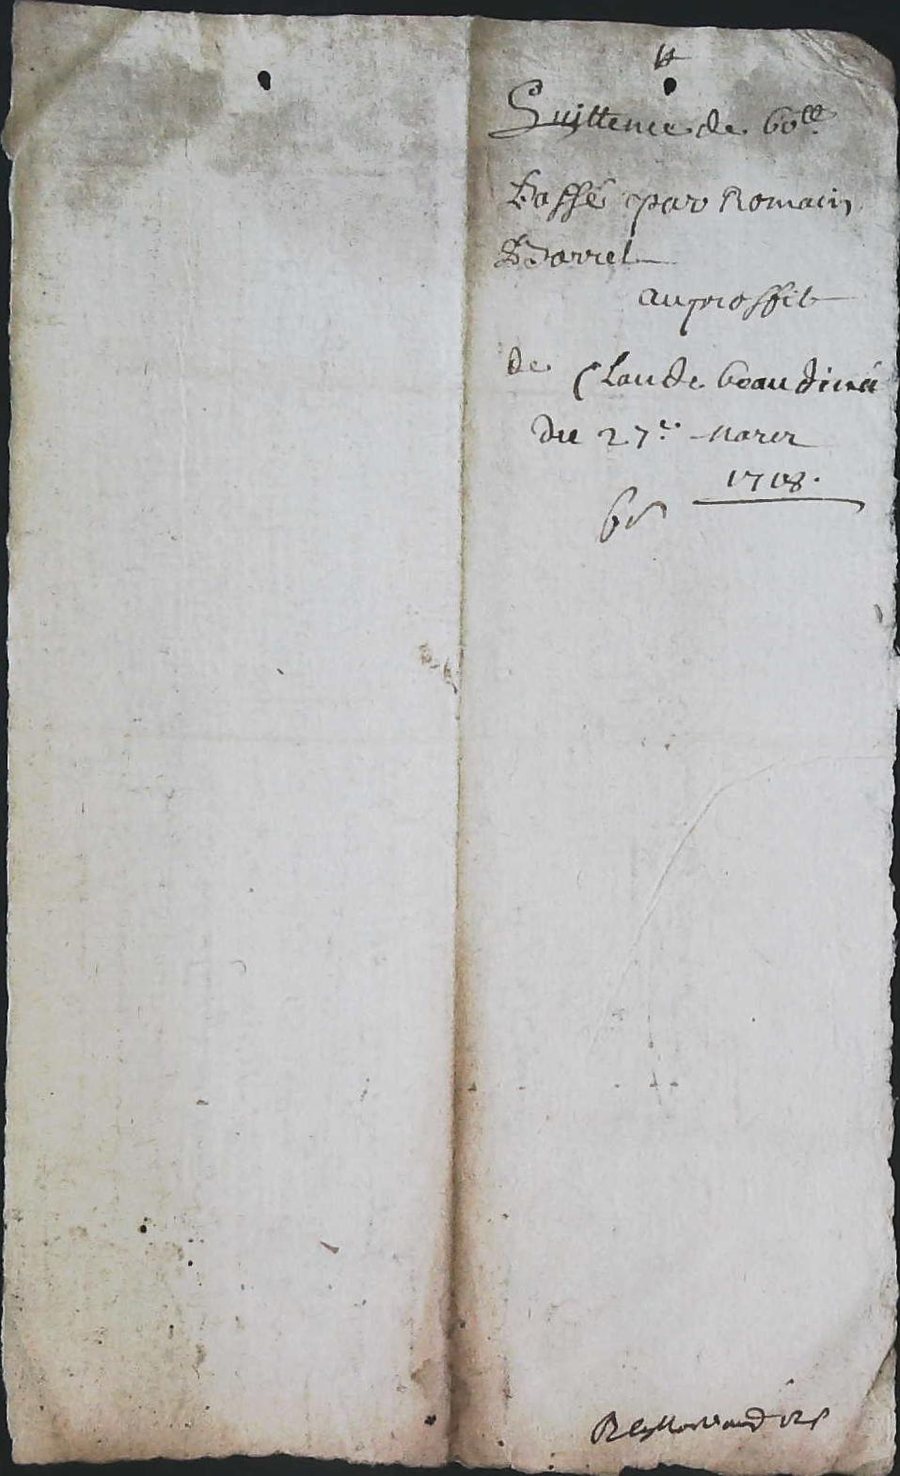 Quittence de 60ll
passé par Romain
Barret
au proffit
de Claude beaudiné
du 27e mars
1718.